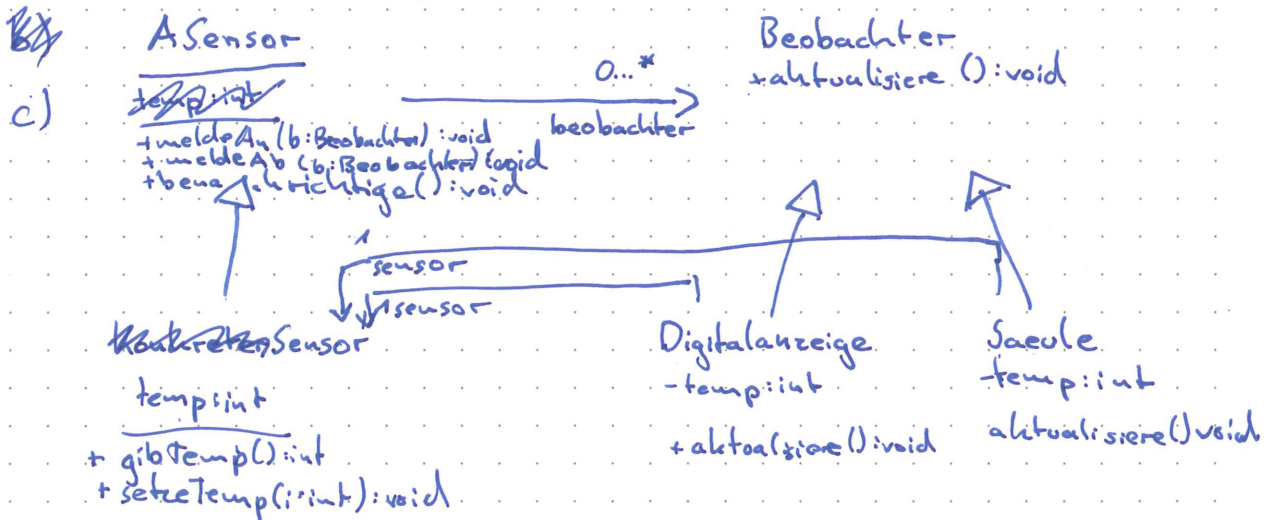 ASensor
c)
+meldeAn(b:Beobachter):void
+meldeAb(b:Beobachter):void
+benachrichtige():void
0...*
beobachter
Beobachter
+aktualisiere():void
1
sensor
1 sensor
Sensor
temp:int
+ gibTemp():int
+ setzeTemp(i:int):void
Digitalanzeige
-temp:int
+aktualsiere():void
Saeule
-temp:int
aktualisiere()void